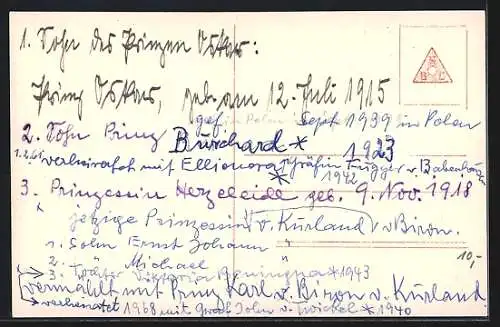 1. Sohn des Prinzen Oskar:
Prinz Oskar, geb. am 12. Juli 1915
gef. in Polen Sept 1939 in Polen
2. Sohn Prinz Burchard * 1923
1.2.61 verheiratet mit Ellionora Gräfin Fugger v. Babenhausen
* 1942
3. Prinzessin Herzeleide geb. 9. Nov. 1918
jetzige Prinzessin v. Kurland v. Biron.
1. Sohn Ernst Johann "
2. " Michael "
3. Tochter Viktoria Benningna * 1943
vermählt mit Prinz Karl v. Biron v. Kurland
verheiratet 1968 mit John v. * 1940
10,-